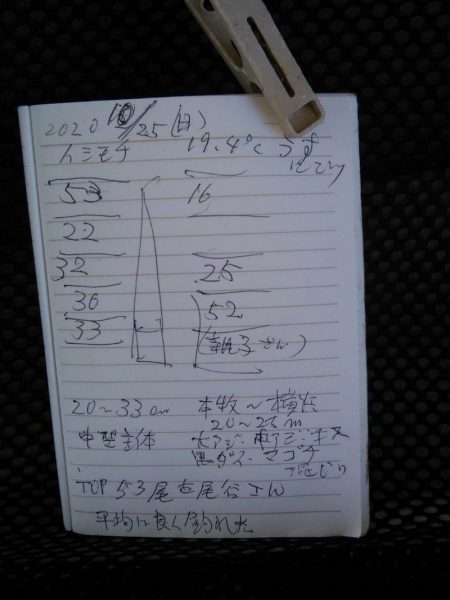 2020 10/25(日)
イシモチ 19.4℃ うす
にごり
53 16
22
32 25
30 52
33 (親子さん)
20～33cm 本牧～横浜
20～25m
中型主体 大アジ・中アジ・キス
黒ダイ・マゴチ
混じり
TOP 53尾 尾谷さん
平均に良く釣れた